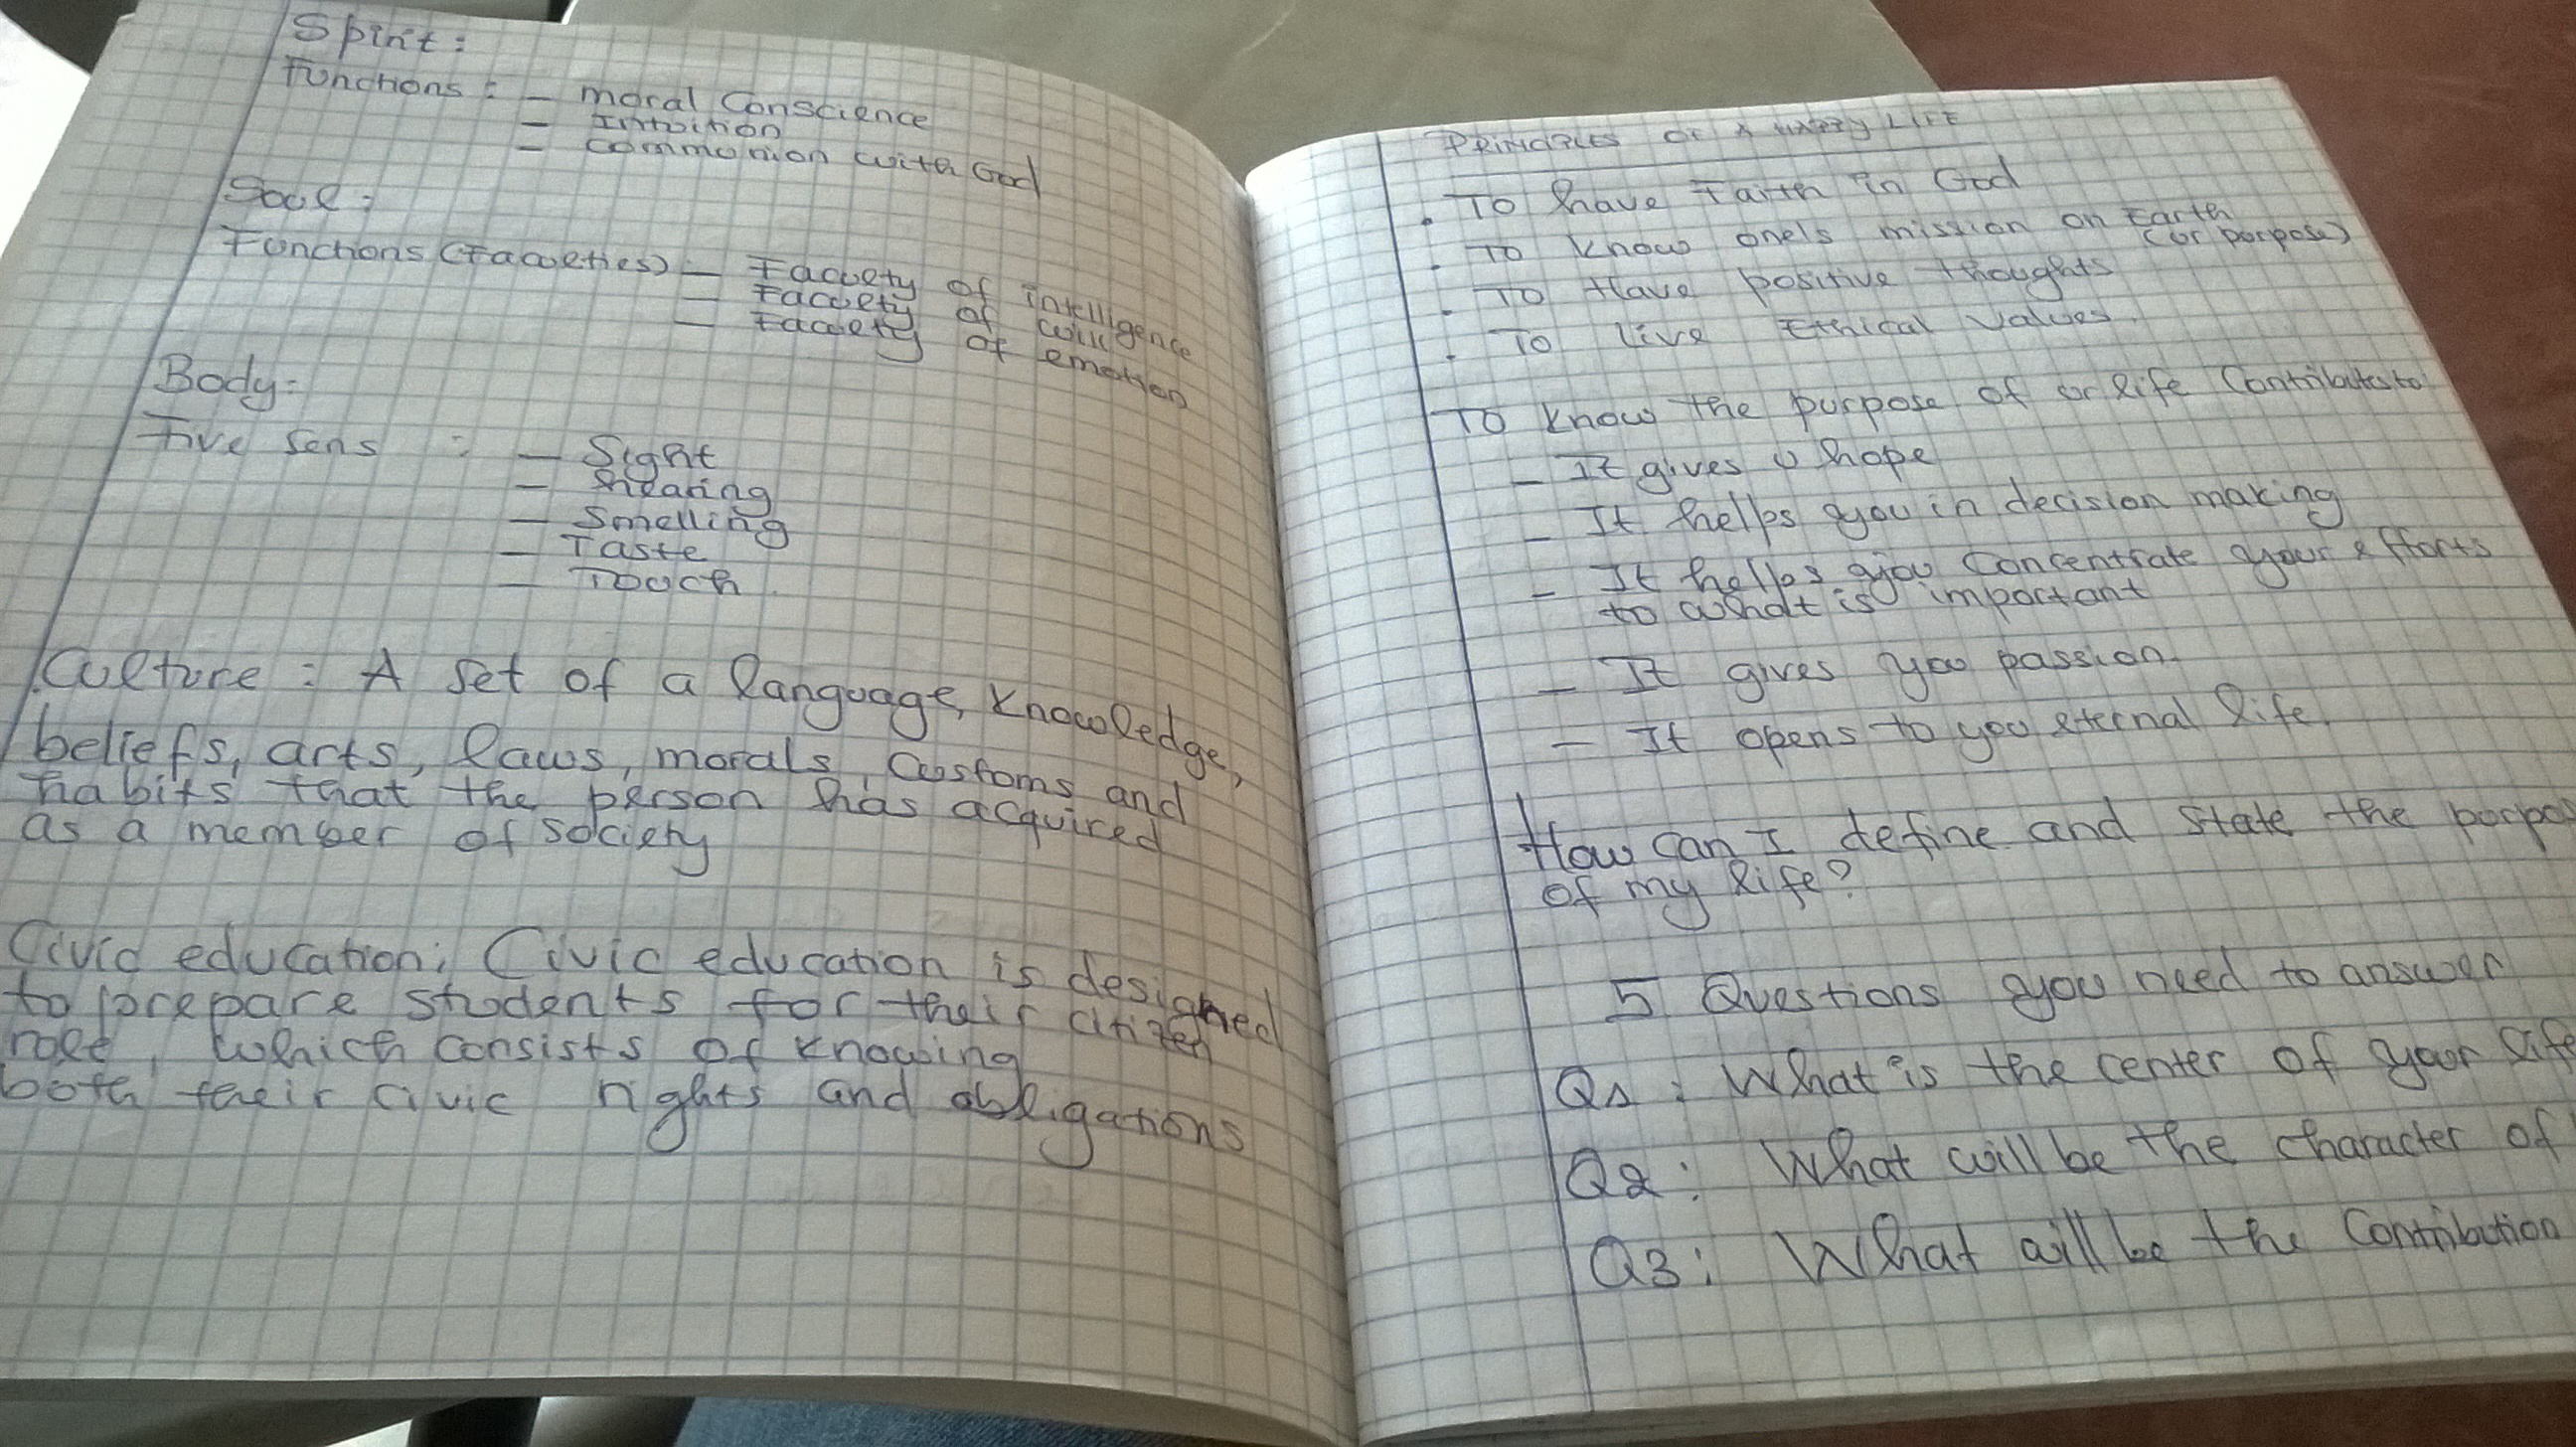 Spirit:
Functions: - moral Conscience
- Intuition
- Communion with God
Soul:
Functions (Faculties) - Faculty of intelligence
- Faculty of will
- Faculty of emotion
Body:
Five Sens : - Sight
- hearing
- Smelling
- Taste
- Touch.
Culture : A set of a language, knowledge,
beliefs, arts, laws, morals, customs and
habits that the person has acquired
as a member of society
Civic education: Civic education is designed
to prepare students for their citizen
role, which consists of knowing
both their civic rights and obligations
PRINCIPLES OF A HAPPY LIFE
. To have Faith in God
. To know one's mission on Earth
(or porpose)
. To Have positive thoughts
. To live Ethical values.
To know the purpose of or life Contributes to
- It gives u hope
- It helps you in decision making
- It helps you Concentrate your efforts
to what is important
- It gives you passion.
- It opens to you eternal life.
How can I define and state the porpo
of my life?
5 Questions you need to answer
Q1 : What is the center of your life
Q2 : What will be the character of
Q3 : What will be the Contribution